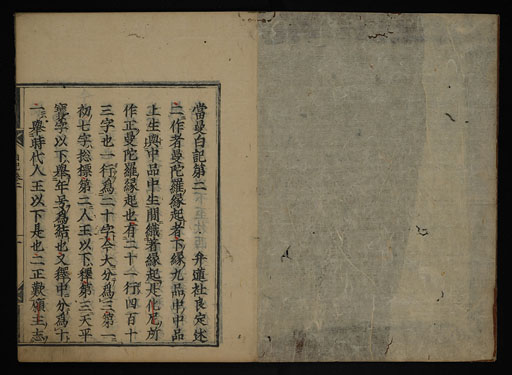 當曼白記第二
弁蓮社良定述
二作者曼陀羅縁起者下縁九品中中品
上生與中品中生間織著縁起是化尼所
作正曼陀羅縁起也有二十一行四百十
三字也一行爲二十字今大分爲三第一
初七字惣標第二人王以下釋第三天平
寳字以下擧年号爲結也又釋中分爲十
一擧時代人王以下是也二正歎願主志